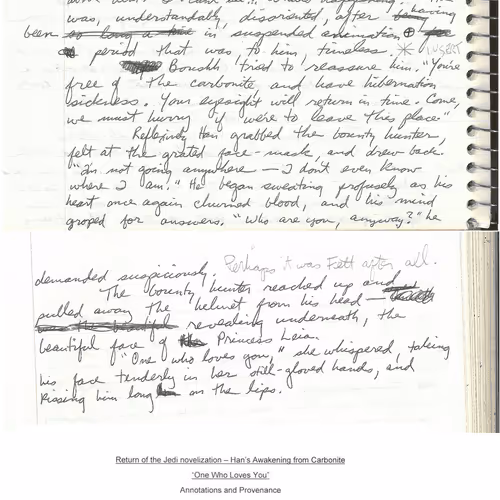 was, understandably, disoriented, after having
been in suspended animation for
a period that was, to him, timeless. * INSERT
Boushh tried to reassure him. "You're
free of the carbonite and have hibernation
sickness. Your eyesight will return in time. Come,
we must hurry if we're to leave this place."
Reflexively Han grabbed the bounty hunter,
felt at the grated face-mask, and drew back.
"I'm not going anywhere — I don't even know
where I am." He began sweating profusely as his
heart once again churned blood, and his mind
groped for answers. "Who are you, anyway?" he
demanded suspiciously. Perhaps it was Fett after all.
The bounty hunter reached up and
pulled away the helmet from his head —
revealing underneath, the
beautiful face of Princess Leia.
"One who loves you," she whispered, taking
his face tenderly in her still-gloved hands, and
kissing him long on the lips.
Return of the Jedi novelization – Han's Awakening from Carbonite
"One Who Loves You"
Annotations and Provenance